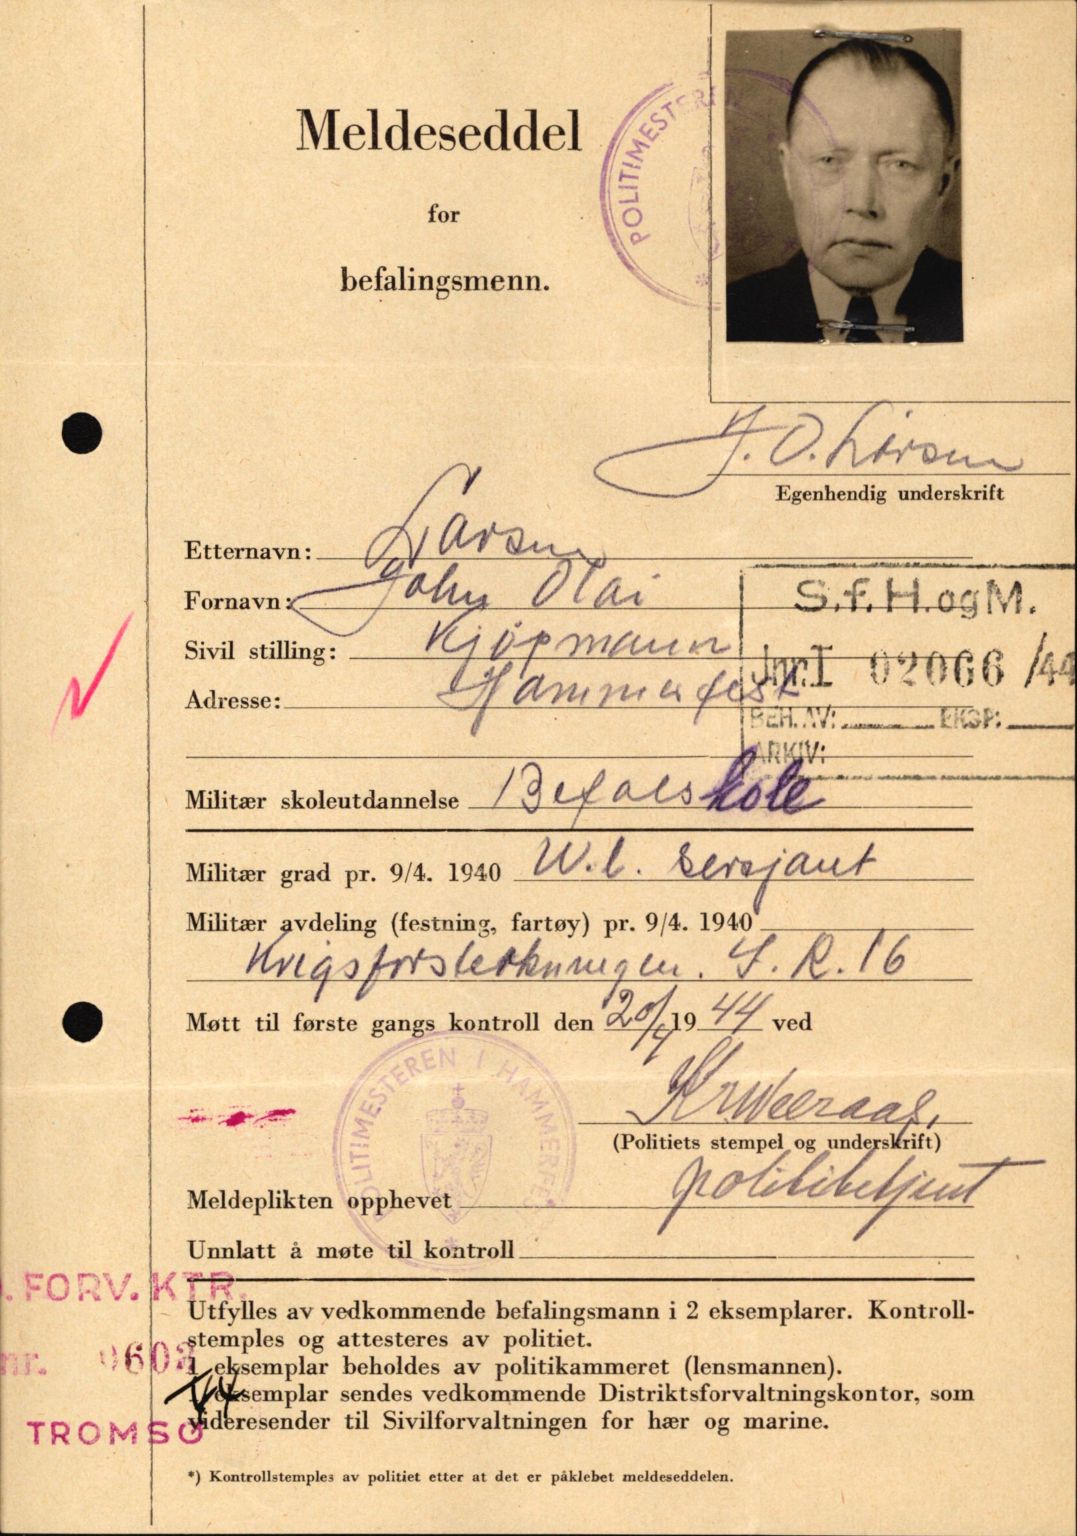 Meldeseddel
for
befalingsmenn.
POLITIMESTEREN
J. O. Larsen
Egenhendig underskrift
Etternavn: Larsen
Fornavn: John Olai
Sivil stilling: Kjøpmann
Adresse: Hammerfest
S.f.H.ogM.
Jnr.I 02066 /44
BEH.AV: EKSP:
ARKIV:
Militær skoleutdannelse Befalskole
Militær grad pr. 9/4. 1940 W.l. sersjant
Militær avdeling (festning, fartøy) pr. 9/4. 1940
Krigsforsterkningen. I.R.16
Møtt til første gangs kontroll den 20/4 1944 ved
POLITIMESTEREN I HAMMERFEST
(Politiets stempel og underskrift)
politibetjent
Meldeplikten opphevet
Unnlatt å møte til kontroll
. FORV. KTR.
nr.
TROMSØ
Utfylles av vedkommende befalingsmann i 2 eksemplarer. Kontroll-
stemples og attesteres av politiet.
1 eksemplar beholdes av politikammeret (lensmannen).
1 eksemplar sendes vedkommende Distriktsforvaltningskontor, som
videresender til Sivilforvaltningen for hær og marine.
*) Kontrollstemples av politiet etter at det er påklebet meldeseddelen.